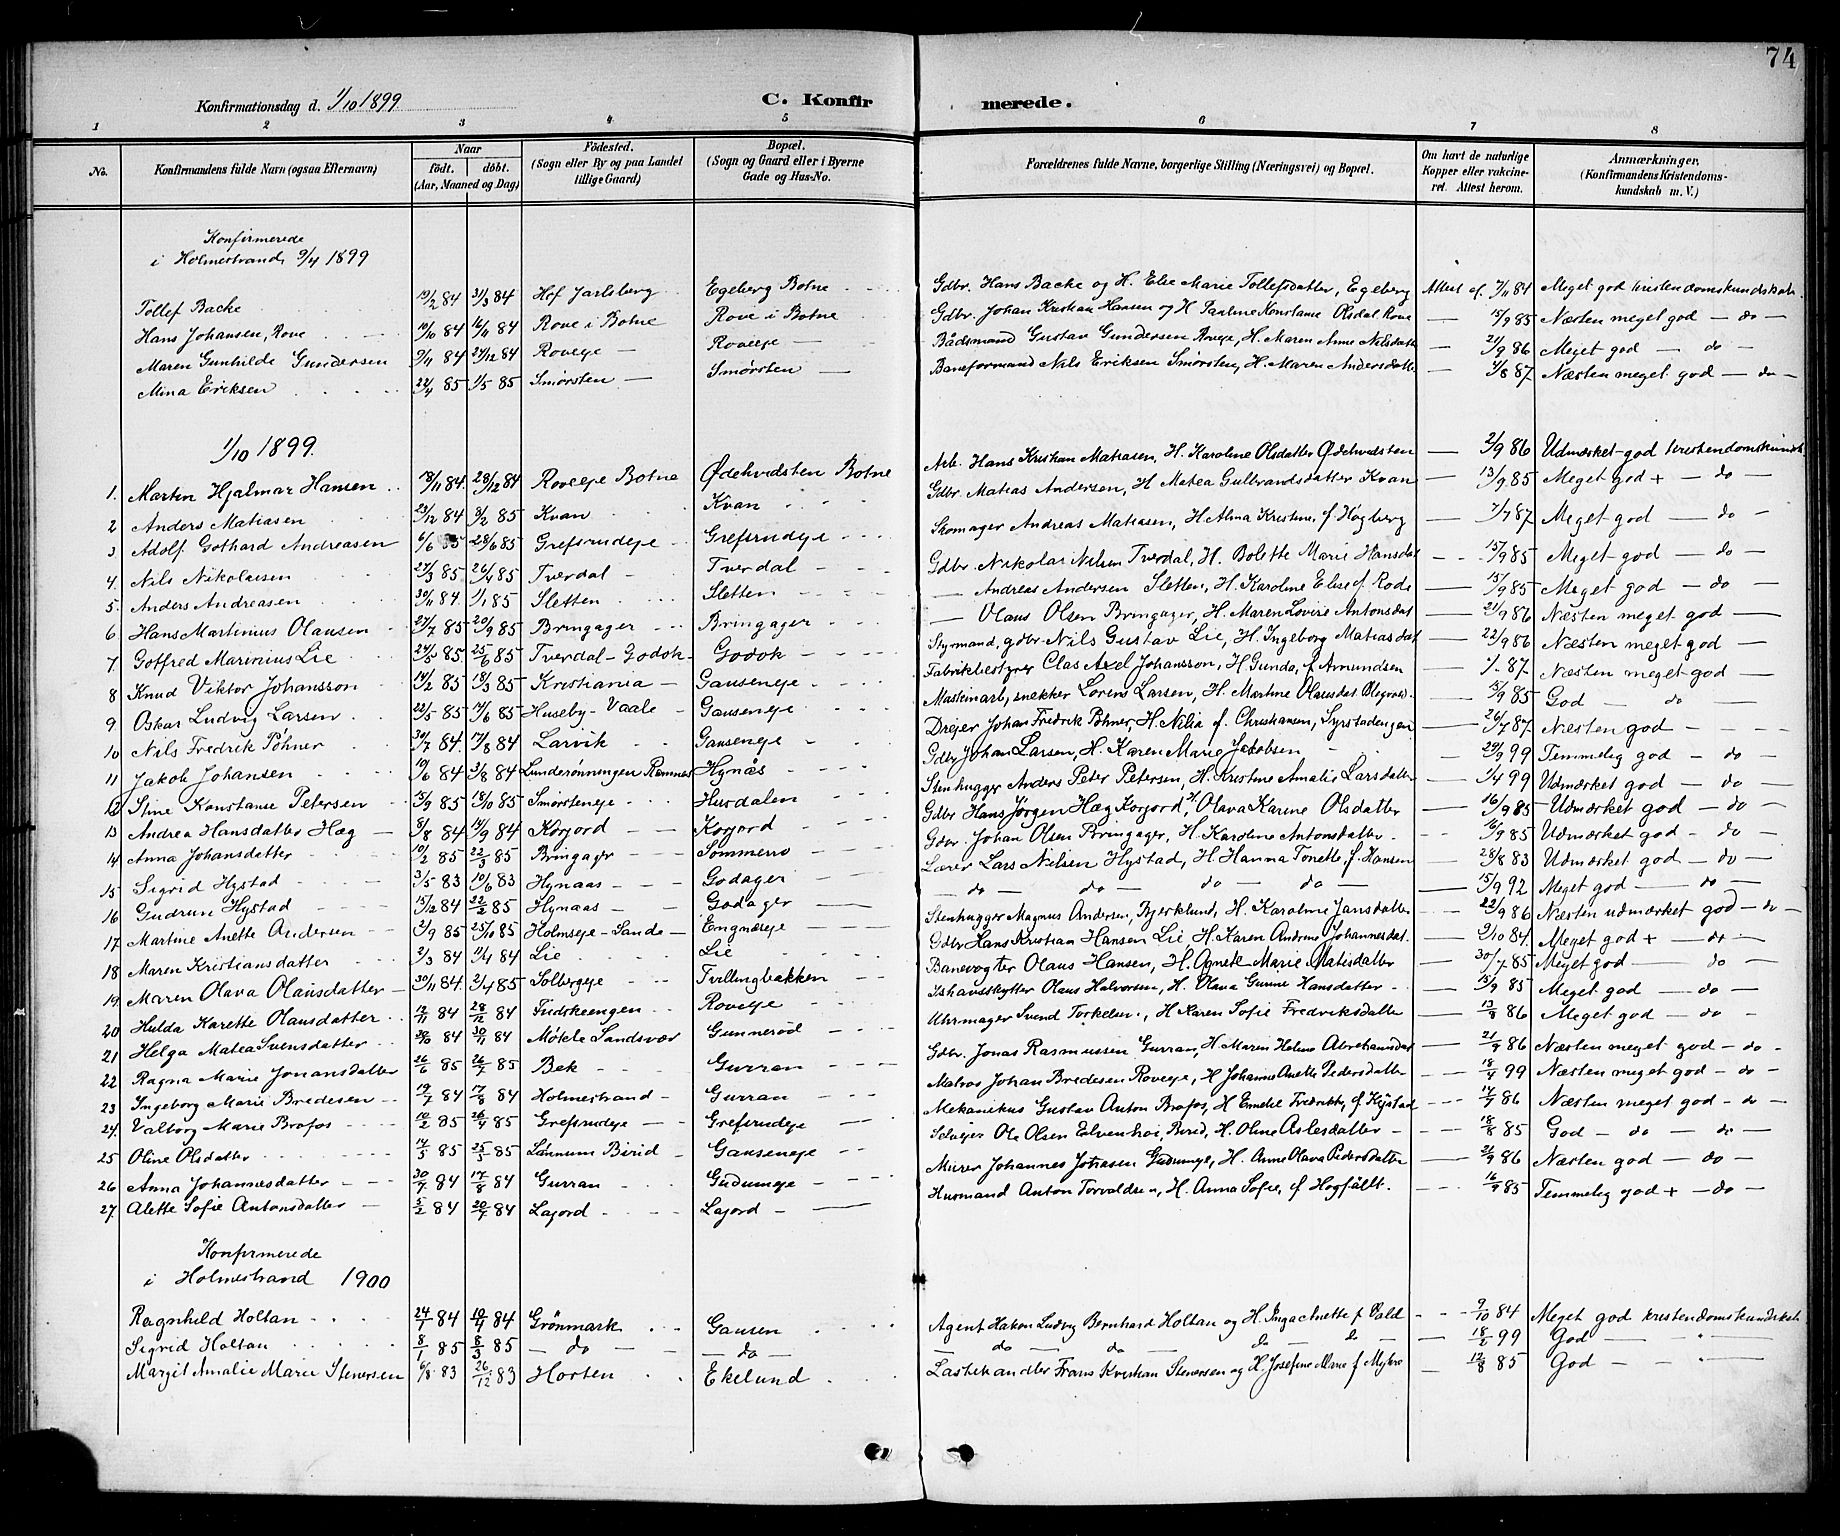 74
Konfirmationsdag d. 1/10 1899
C. Konfirmerede.
1 2 3 4 5 6 7 8
No.
Konfirmandens fulde Navn (ogsaa Efternavn)
Naar
født. døbt.
(Aar, Maaned og Dag)
Fødested.
(Sogn eller By og paa Landet
tillige Gaard)
Bopæl.
(Sogn og Gaard eller i Byerne
Gade og Hus-No.
Forældrenes fulde Navne, borgerlige Stilling (Næringsvei) og Bopæl.
Om havt de naturlige
Kopper eller vakcine-
ret. Attest herom.
Anmærkninger,
(Konfirmandens Kristendoms-
kundskab m. V.)
Konfirmerede
i Holmestrand 9/4 1899
Tollef Backe 84 21/3 84 Hof Jarlsberg Egeberg Botne Gdbr. Hans Backe og H. Else Marie Tollefsdatter, Egeberg Attest af 84 Meget god kristendomskundskab.
Hans Johansen, Rove 84 84 Rove i Botne Rove i Botne Gdbr. Johan Kristian Hansen og H. Pauline Konstanse Olsdat Rove — 15/9 85 Næsten meget god — do —
Maren Gunhilde Gundersen 9/11 84 84 Roveeje — Roveeje — Bådsmand Gustav Gundersen Roveje, H. Maren Anne Nilsdatt — 21/9 86 Meget god — do —
Mina Eriksen 22/4 85 1/5 85 Smørsten — Smørsten — Baneformand Nils Eriksen Smørsten, H. Maren Andersdatt — 87 Næsten meget god — do —
1/10 1899.
1. Martin Hjalmar Hansen 18/11 84 28/12 84 Roveeje Botne Ødehvidsten Botne Arb. Hans Kristian Matiasen, H. Karoline Olsdatter Ødehvidsten — 2/9 86 Udmærket god kristendomskundsk
2 Anders Matiasen 23/12 84 8/2 85 Kvan Kvan Gdbr. Matias Andersen, H. Matea Gulbrandsdatter Kvan — 13/9 85 Meget god + — do
3 Adolf Gothard Andreasen 6/6 85 28/6 85 Grefsrudeje Grefsrudeje Skomager Andreas Matiasen, H. Alma Kristine, f. Høgberg — 87 Meget god — do —
4. Nils Nikolaisen 27/3 85 26/4 85 Tverdal Tverdal Gdbr. Nikolai Nilsen Tverdal, H. Bolette Marie Hansdat — 15/9 85 Meget god — do —
5. Anders Andreasen 30/11 84. 1/1 85 Sletten Sletten — Andreas Andersen Sletten, H. Karoline Elise f. Rode — 15/9 85 Meget god — do —
6 Hans Martinius Olausen 27/7 85 20/9 85 Bringager Bringager — Olaus Olsen Bringager, H. Maren Lovise Antonsdat — 21/9 86 Næsten meget god —
7 Gotfred Marinius Lie 24/5 85. 25/6 85 Tverdal - Godok Godok Styrmand, gdbr Nils Gustav Lie, H. Ingeborg Matiasdat — 22/9 86 Næsten meget god —
8 Knud Viktor Johansson 14/2 85 18/3 85 Kristiania — Gauseneje Fabrikbestyrer Clas Axel Johansson, H Gunda, f. Amundsen — 87 Næsten meget god —
9 Oskar Ludvig Larsen 22/5 85 14/6 85 Huseby - Vaale Gauseneje Maskinarb, snekker Lorens Larsen, H. Martine Olausdat — 85 God — do —
10 Nils Fredrik Pöhner 30/7 84. 17/8 84 Larvik Gauseneje Drejer Johan Fredrik Pöhner, H. Nilia f. Christiansen, — 26/7 87 Næsten god
11 Jakob Johansen 19/6 84 3/8 84 Lunderønningen Ramnes Hynås Gdbr Johan Larsen, H. Karen Marie Jakobsen — 29/9 99 Temmelig god — do
12 Stine Konstanse Petersen 15/9 85 18/10 85 Smørsteneje Hurdalen Stenhugger Anders Peter Petersen, H. Kristine Amalie Larsdatter — 99 Udmærket god — do
13 Andrea Hansdatter Hæg 8/8 84 14/9 84 Korjord Korjord Gdbr Hans Jørgen Hæg Korjord, H. Olava Karine Olsdatter — 16/9 85 Udmærket god — do —
14 Anna Johansdatter 10/2 85 22/3 85 Bringager Sommerro Gdbr. Johan Olsen Bringager, H. Karoline Antonsdatter — 16/9 85 Udmærket god — do —
15 Sigrid Hystad 3/5 83 10/6 83 Hynaas Godager Lærer Lars Nilsen Hystad, H. Hanna Tonette, f. Hansen — 28/8 83 Udmærket god — do —
16 Gudrun Hystad 15/12 84 22/2 85 Hynaas Godager — do — do — do — do — 15/9 92 Meget god — do —
17 Martine Anette Andersen 3/9 85 25/10 85 Holmseje - Sande Engnæseje Stenhugger Magnus Andersen, Bjerklund, H. Karoline Jansdatter — 22/9 86 Næsten udmærket god — do —
18 Maren Kristiansdatter 2/3 84 84 Lie Lie Gdbr. Hans Kristian Hansen Lie, H. Karen Andrine Johannesdat. — 2/10 84. Meget god + — do —
19 Maren Olava Olausdatter 30/11 84. 85 Solbergeje Tvillingbakken Banevogter Olaus Hansen, H. Agnete Marie Matisdatter — 30/7 85 Meget god — do —
20 Hulda Karette Olausdatter 12/11 84 28/12 84 Roveje Ishavsskytter Olaus Halvorsen, H. Olava Gurine Hansdatter — 15/9 85 Meget god — do —
21 Helga Matea Svensdatter 84 30/11 84 Møkle Sandsvær Gunnerød Uhrmager Svend Torkelsen, H Karen Sofie Fredriksdatter 86 Meget god — do —
22 Ragna Marie Jonansdatter 26/6 85 26/7 85 Bek Gurran Gdbr. Jonas Rasmussen Gurran, H. Maren Helene Abrahamsdat — 21/9 86 Næsten meget god — do
23 Ingeborg Marie Bredesen 19/7 84 17/8 84 Holmestrand Gurran Matros Johan Bredesen Roveje, H Johanne Anette Pedersdatter — 99 Næsten meget god — do —
24. Valborg Marie Brofos 10/2 85 26/4 85 Grefsrudeje Grefsrudeje Mekanikus Gustav Anton Brofos, H Emelie Fredrikke, f. — 86 Næsten meget god — do —
25 Oline Olsdatter 14/5 85 25/5 85 Lønnum Birid Gauseneje Selvejer Ole Olsen Elvenhoi, Birid, H. Oline Aslesdatter — 18/8 85 God — do — do —
26 Anna Johannesdatter 30/7 84 17/8 84 Gurran Gudumeje Murer Johannes Johasen Gudumeje, H. Anne Olava Pedersdatter — 21/9 86 Næsten god — do —
27. Alette Sofie Antonsdatter 5/2 84 20/7 84 Lajord Lajord Husmand Anton Torvaldsen, H. Anna Sofie, f Høgfållt. 16/9 85 Temmelig god + — do —
Konfirmerede
i Holmestrand 1900
Ragnhild Holtan 24/1 84 84 Grönmark Gausen Agent Hakon Ludvig Bernhard Holtan og H. Inga Anette f. Vold 9/10 84 Meget god kristendomskundskab
Sigrid Holtan 8/1 85 8/3 85 — do — — do — do do do do 18/2 99 God —
Margit Amalie Marie Stenersen 6/8 83 26/12 83 Horten Ekelund Lastehandler Frans Kristian Stenersen og H. Josefine Marie f Myhre — 12/8 85 God —